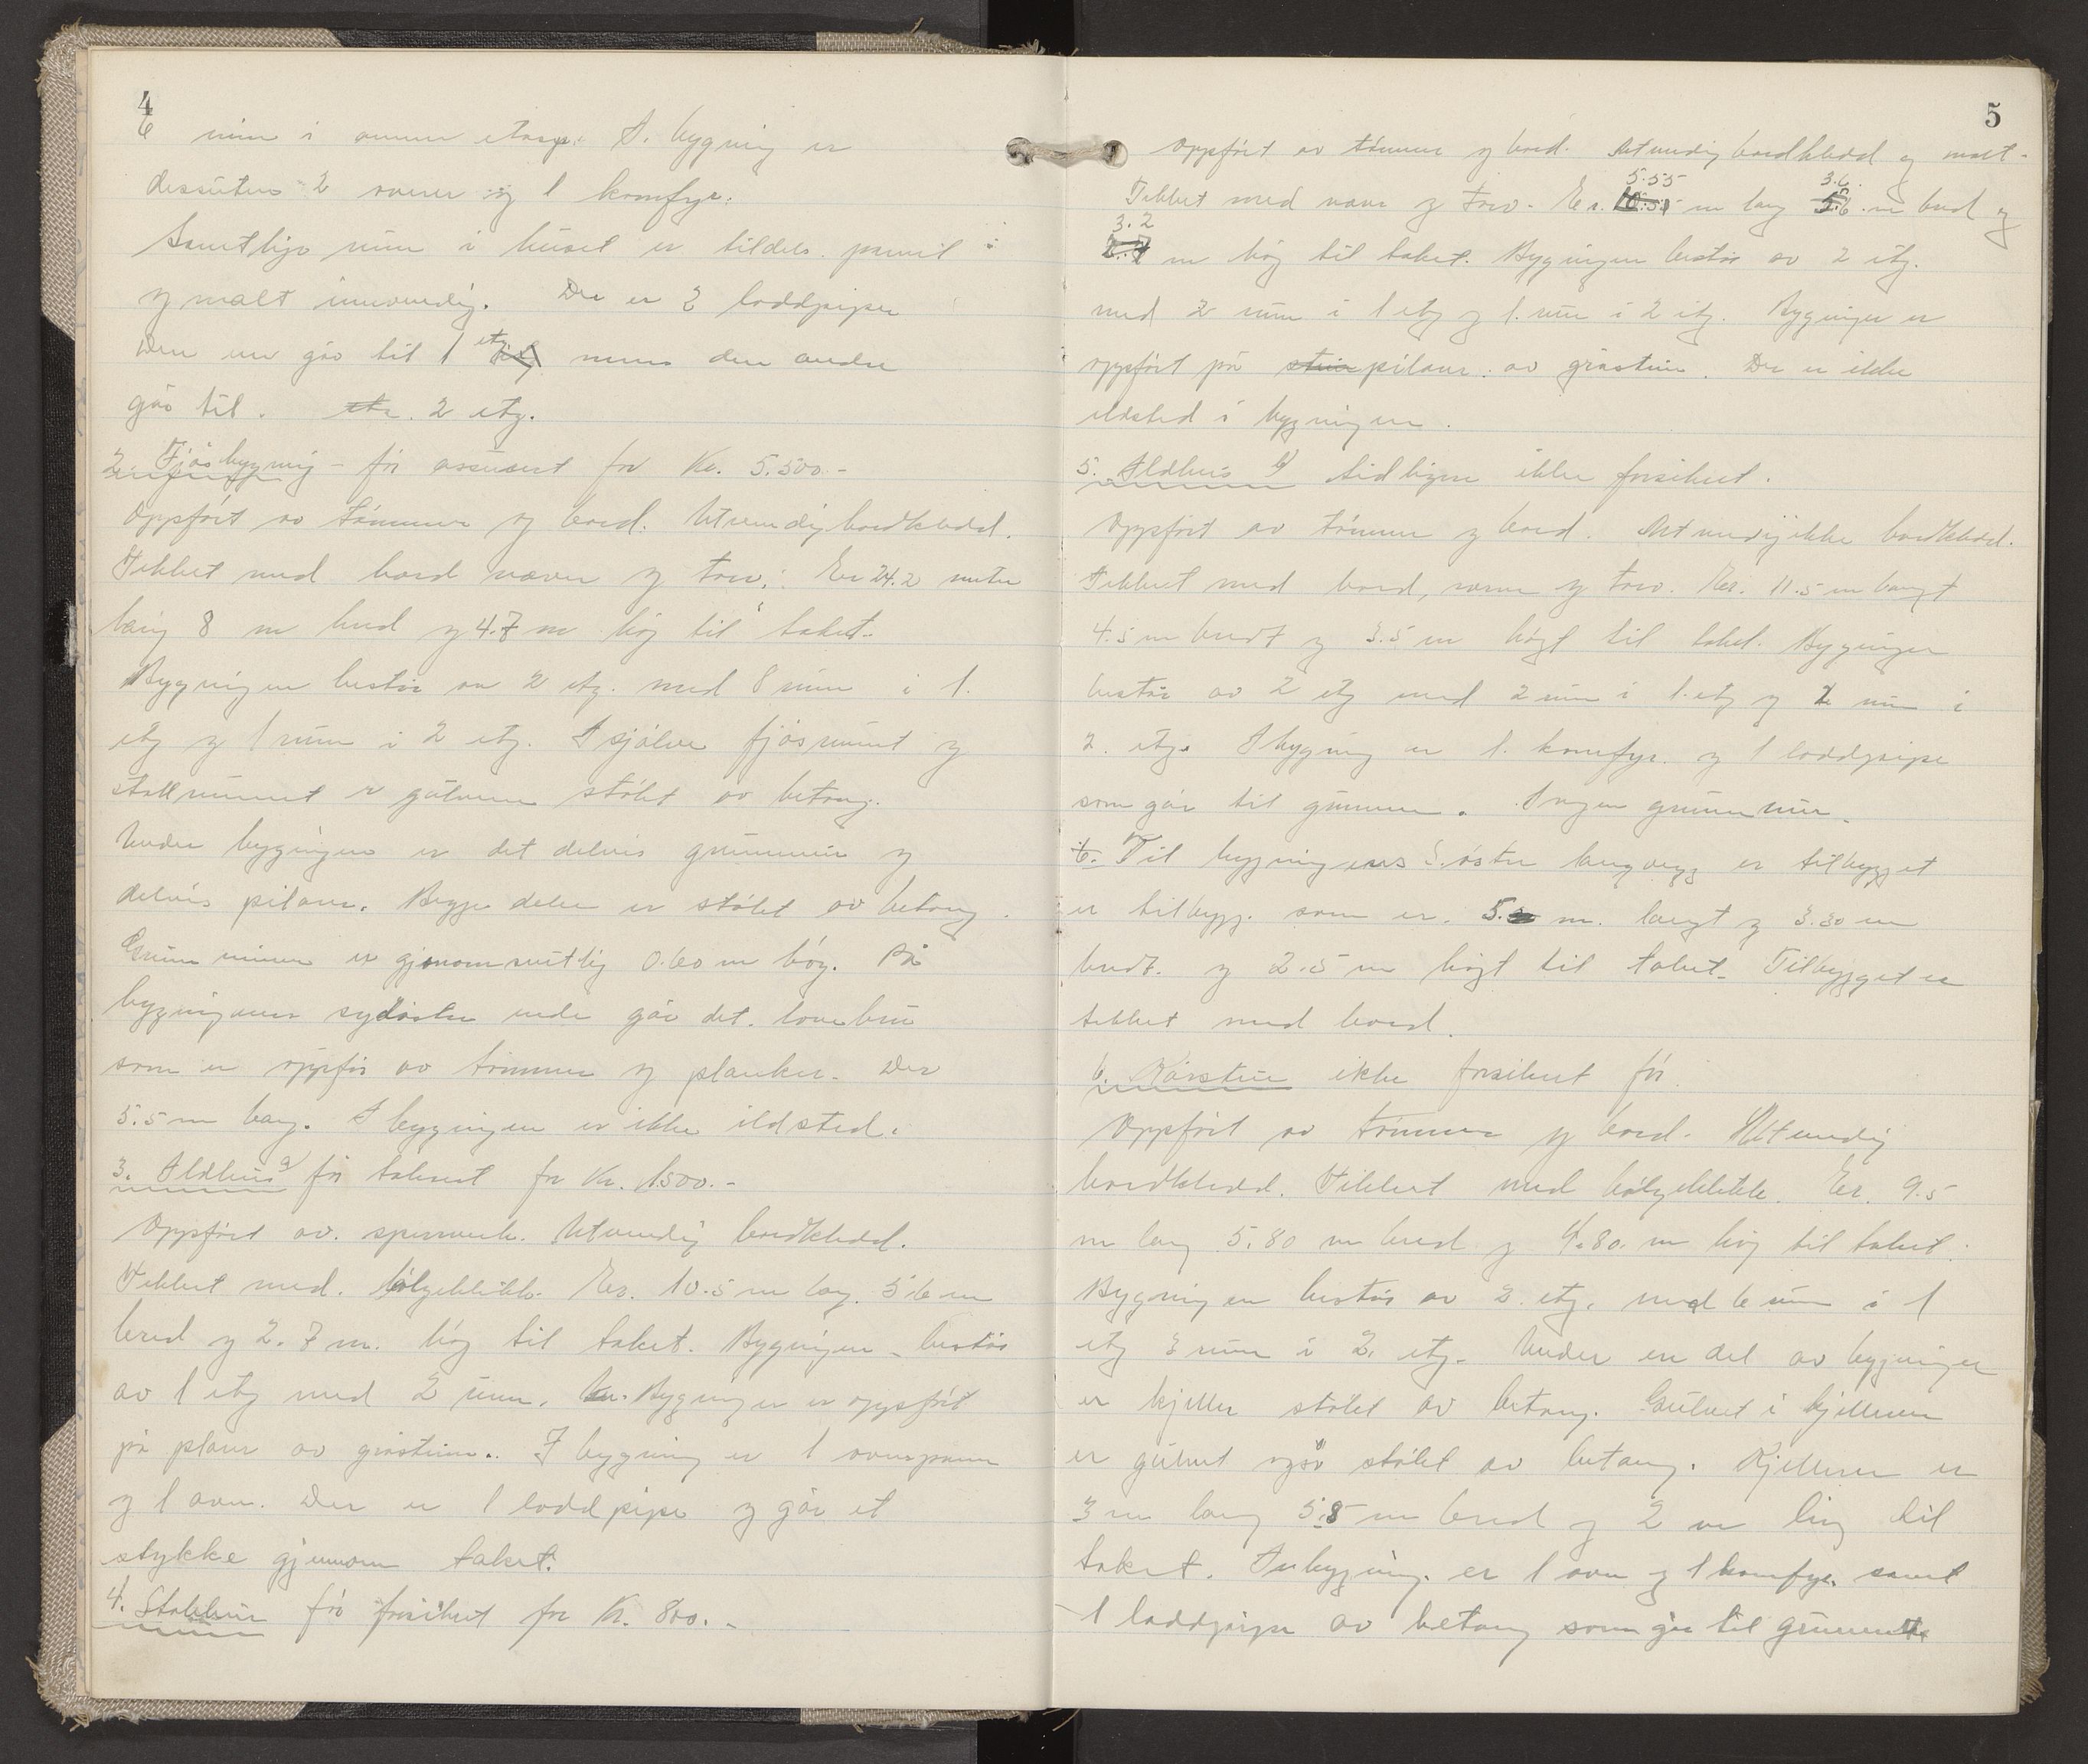 4
6 rum i annen etasje. I. bygning er
dessuten 2 ovner og 1 komfyr.
Samtlige rum i huset er tildels panel
og malt innvendig. Der er 2 loddpiper
den ene går til 1 etg mens den andre
går til . etr. 2 etg.
2. Fjøsbygnig - før assurert for Kr. 5.500.-
Oppført av tømmer og bord. Utvendig bordkledd.
Tekket med bord næver og torv. Er 24.2 meter
lang 8 m bred og 4.7 m høg til taket.
Bygningen består av 2 etg. med 8 rum i 1.
etg og 1 rum i 2 etg. I sjølve fjøsrumet og
stallrumet er gulvene støbt av betong.
Under bygingen er det delvis grunnmur og
delvis pilarer. Begge deler er støbt av betong.
Grunnmuren er gjenomsnitlig 0.60 m høg. På
bygningens sydøstre ende går det låvebru
som er oppfør av tømmer og planker. Der
5.5 m lang. I bygningen er ikke ildsted.
3. Ildhus a) før takseret for Kr. 1500.-
Oppført av. spennverk. Utvendig bordkledd.
Tekket med. bølgeblikk. Er. 10.5 m lang. 5.6 m
bred og 2.7 m. høg til taket. Bygningen består
av 1 etg med 2 rum. Bygningen er oppført
på pilarer av gråstein. I bygning er 1 ovnspanne
og 1 ovn. Der er 1 loddpipe og går et
stykke gjennom taket.
4. Stabbur før forsikret for Kr. 800.-
5
Oppført av tømmer og bord. Utvendig bordkledd og malt.
5.55 3.6.
Tekket med næver og torv. Er. 10.5 m lang 5.6 m bred og
3.2
2.7 m høg til taket. Bygningen består av 2 etg.
med 2 rum i 1 etg og 1. rum i 2 etg. Bygningen er
oppført på stein pilarer av gråstein. Der er ikke
ildsted i bygningen.
5. Ildhus b) tidligere ikke forsikret.
Oppført av tømmer og bord. Utvendig ikke bordkledd.
Tekket med bord, næver og torv. Er. 11.5 m langt
4.5 m bredt og 3.5 m høgt til taket. Bygningen
består av 2 etg med 2 rum i 1. etg og 1 rum i
2. etg. I bygning er 1. komfyr. og 1 loddpipe
som går til grunnen. Ingen grunnmur.
6. Til bygningens østre langvegg er tilbygget
er tilbygg. som er. 5. m. langt og 3.30 m
bredt. og 2.5 m høgt til taket. Tilbygget er
tekket med bord.
6. Kårstue ikke forsikret før.
Oppført av tømmer og bord. Utvendig
bordkledd. Tekket med bølgeblikk. Er. 9.5
m lang 5.80 m bred og 4.80. m høg til taket.
Bygningen består av 2. etg. med 6 rum i 1
etg 3 rum i 2. etg. Under en del av bygningen
er kjeller støbt av betong. Gulvet i kjelleren
er gulvet også støbt av betong. Kjelleren er
3 m lang 5.8 m bred og 2 m høg til
taket. I bygning. er 1 ovn og 1 komfyr. samt
1 loddpipe av betong som går til grunnen.